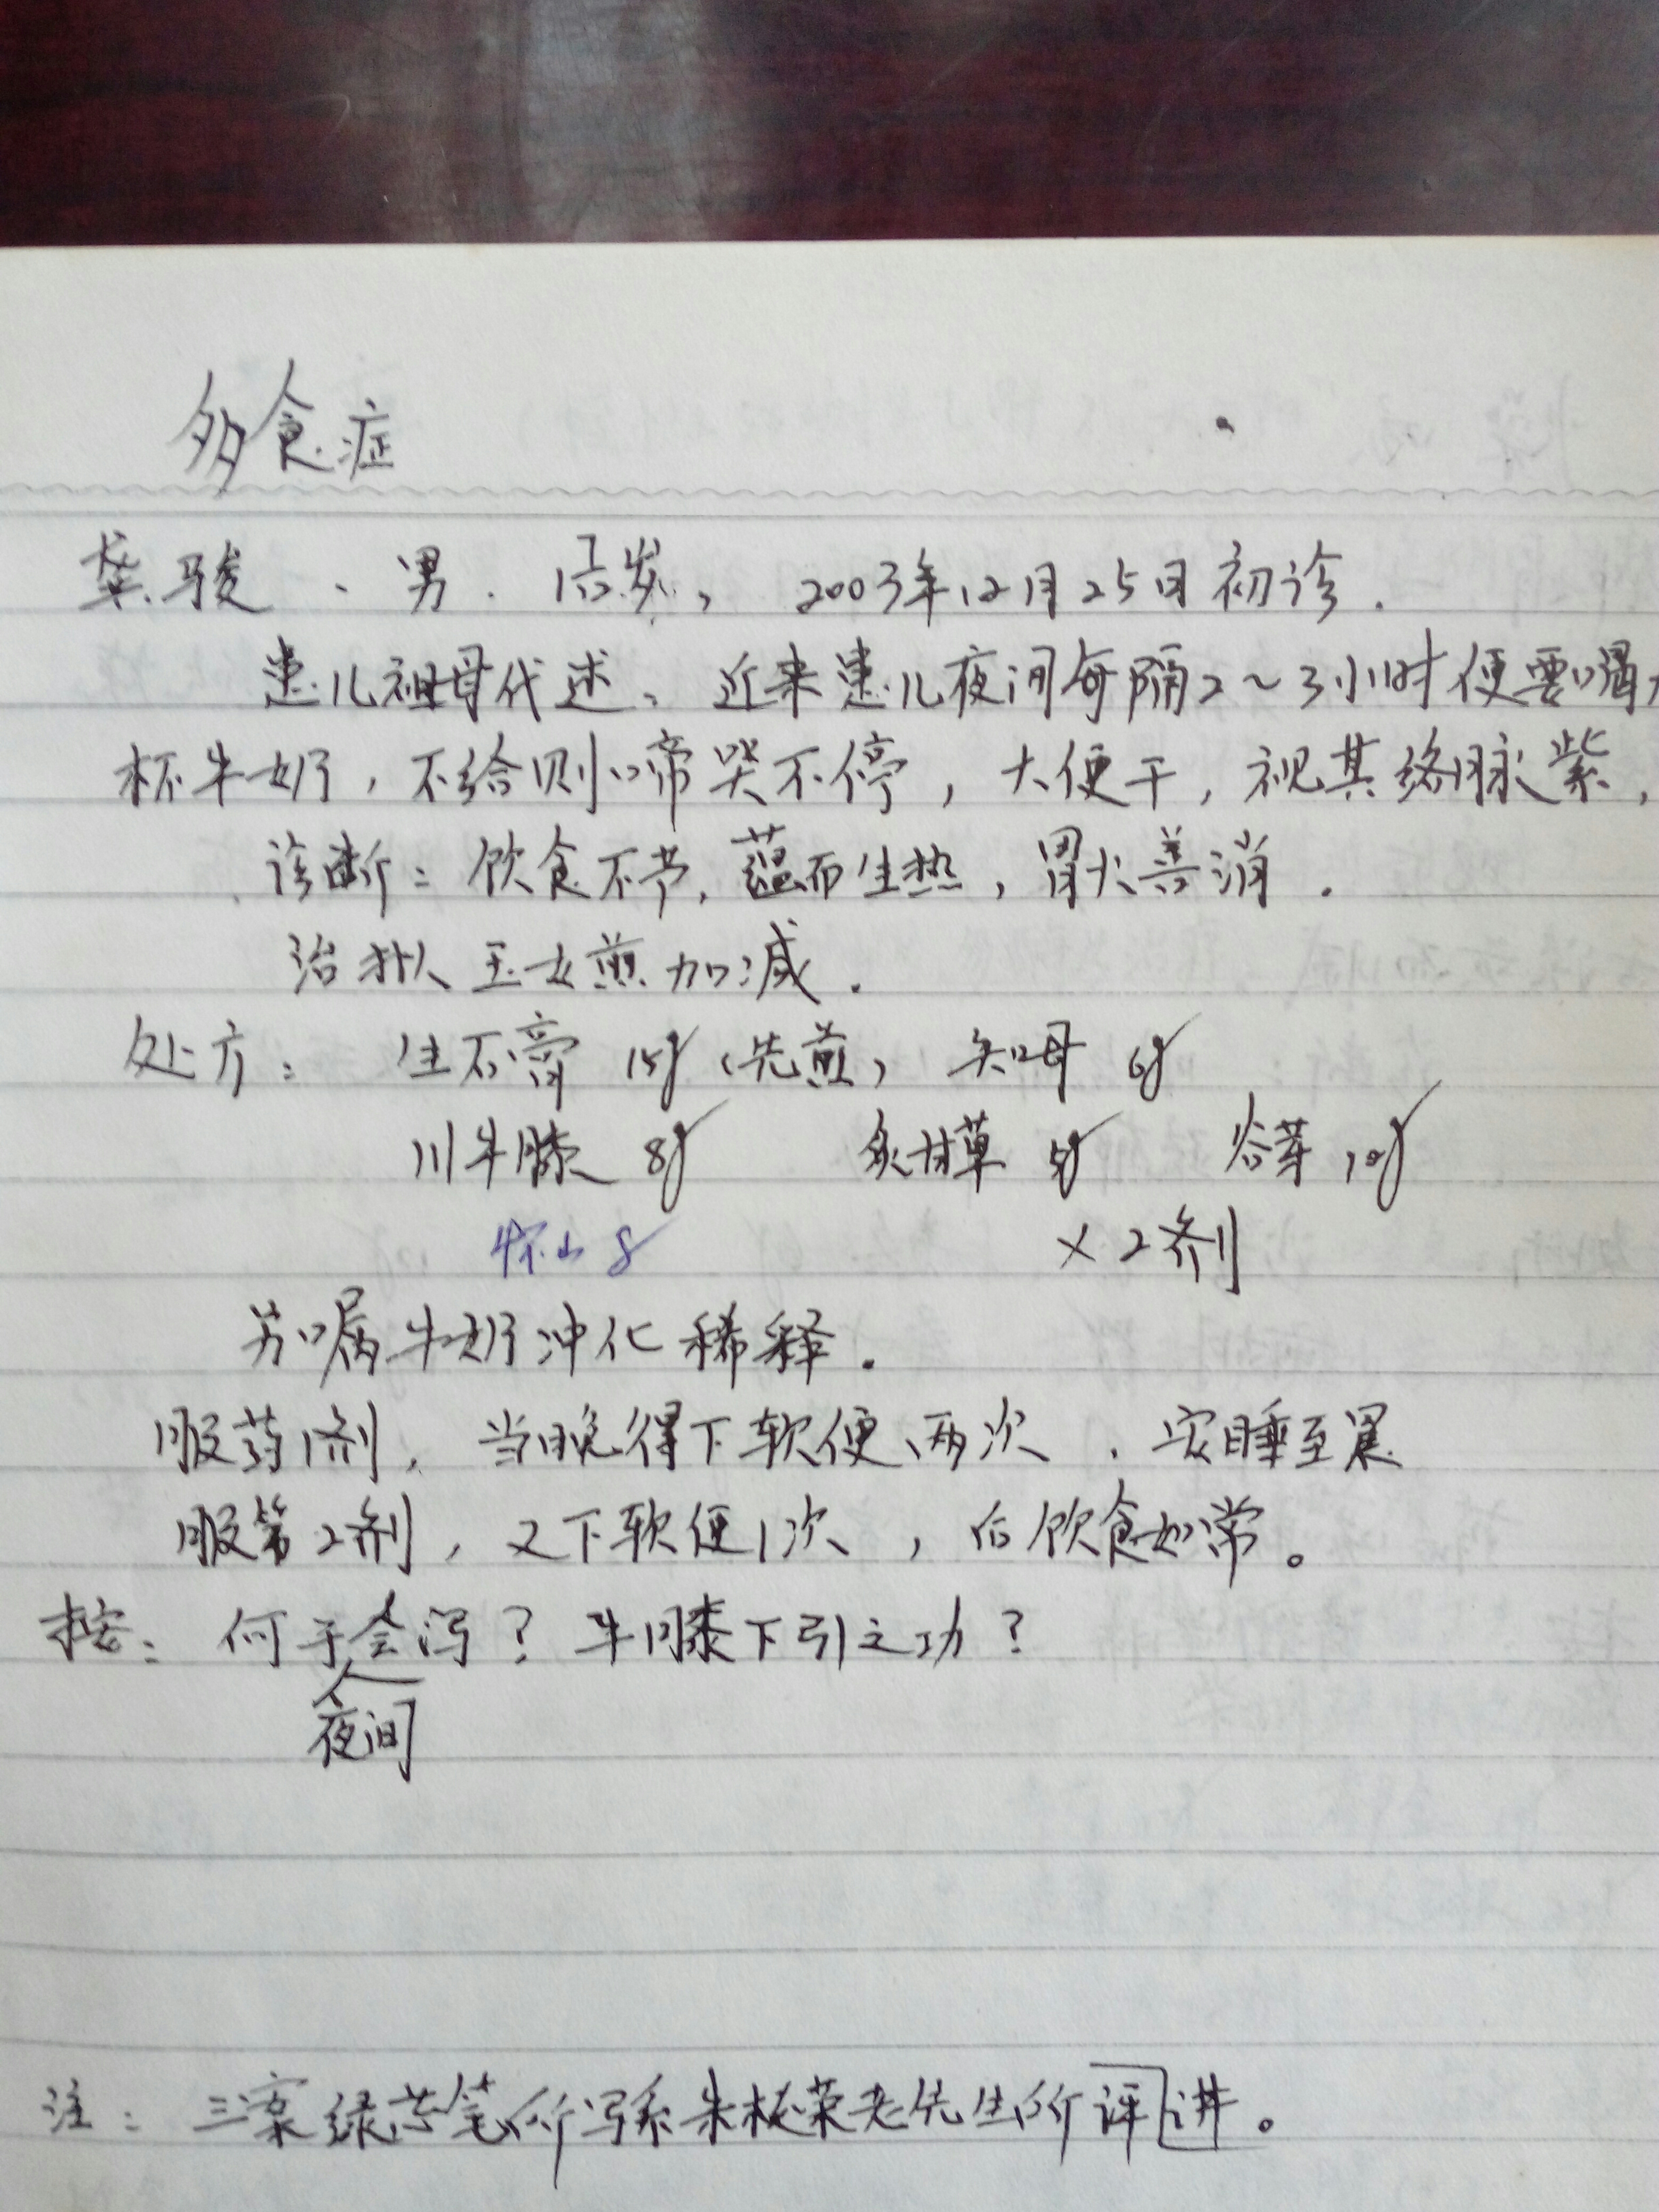 多食症
龚骏、男. 1岁, 2003年12月25日初诊.
患儿祖母代述: 近来患儿夜间每隔2～3小时便要喝
杯牛奶,不给则啼哭不停,大便干,视其络脉紫,
诊断:饮食不节,蕴而生热,胃火善消.
治拟玉女煎加减.
处方: 生石膏 15g(先煎) 知母 6g
川牛膝 8g 炙甘草 5g 谷芽 10g
怀山 8 ×2剂
另嘱牛奶冲化稀释.
服药1剂, 当晚得下软便两次,安睡至晨
服第2剂,又下软便1次,后饮食如常。
按: 何于会泻?牛膝下引之功?
夜间
注: 三案绿芯笔所写系朱栋荣老先生所评讲。